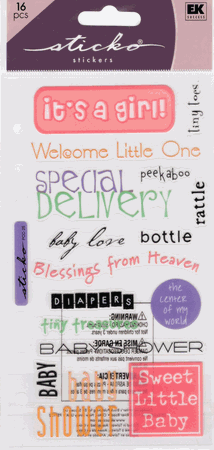 16
PCS
EK
SUCCESS
sticko
stickers
it's a girl!
tiny toes
Welcome Little One
SPECIAL
peekaboo
DELIVERY
rattle
baby love
bottle
Blessings from Heaven
sticko
DIAPERS
the
center of
my world
WARNING:
tiny treasures
MISE EN GARDE:
BABY SHOWER
BABY
baby
shower
Sweet
Little
Baby